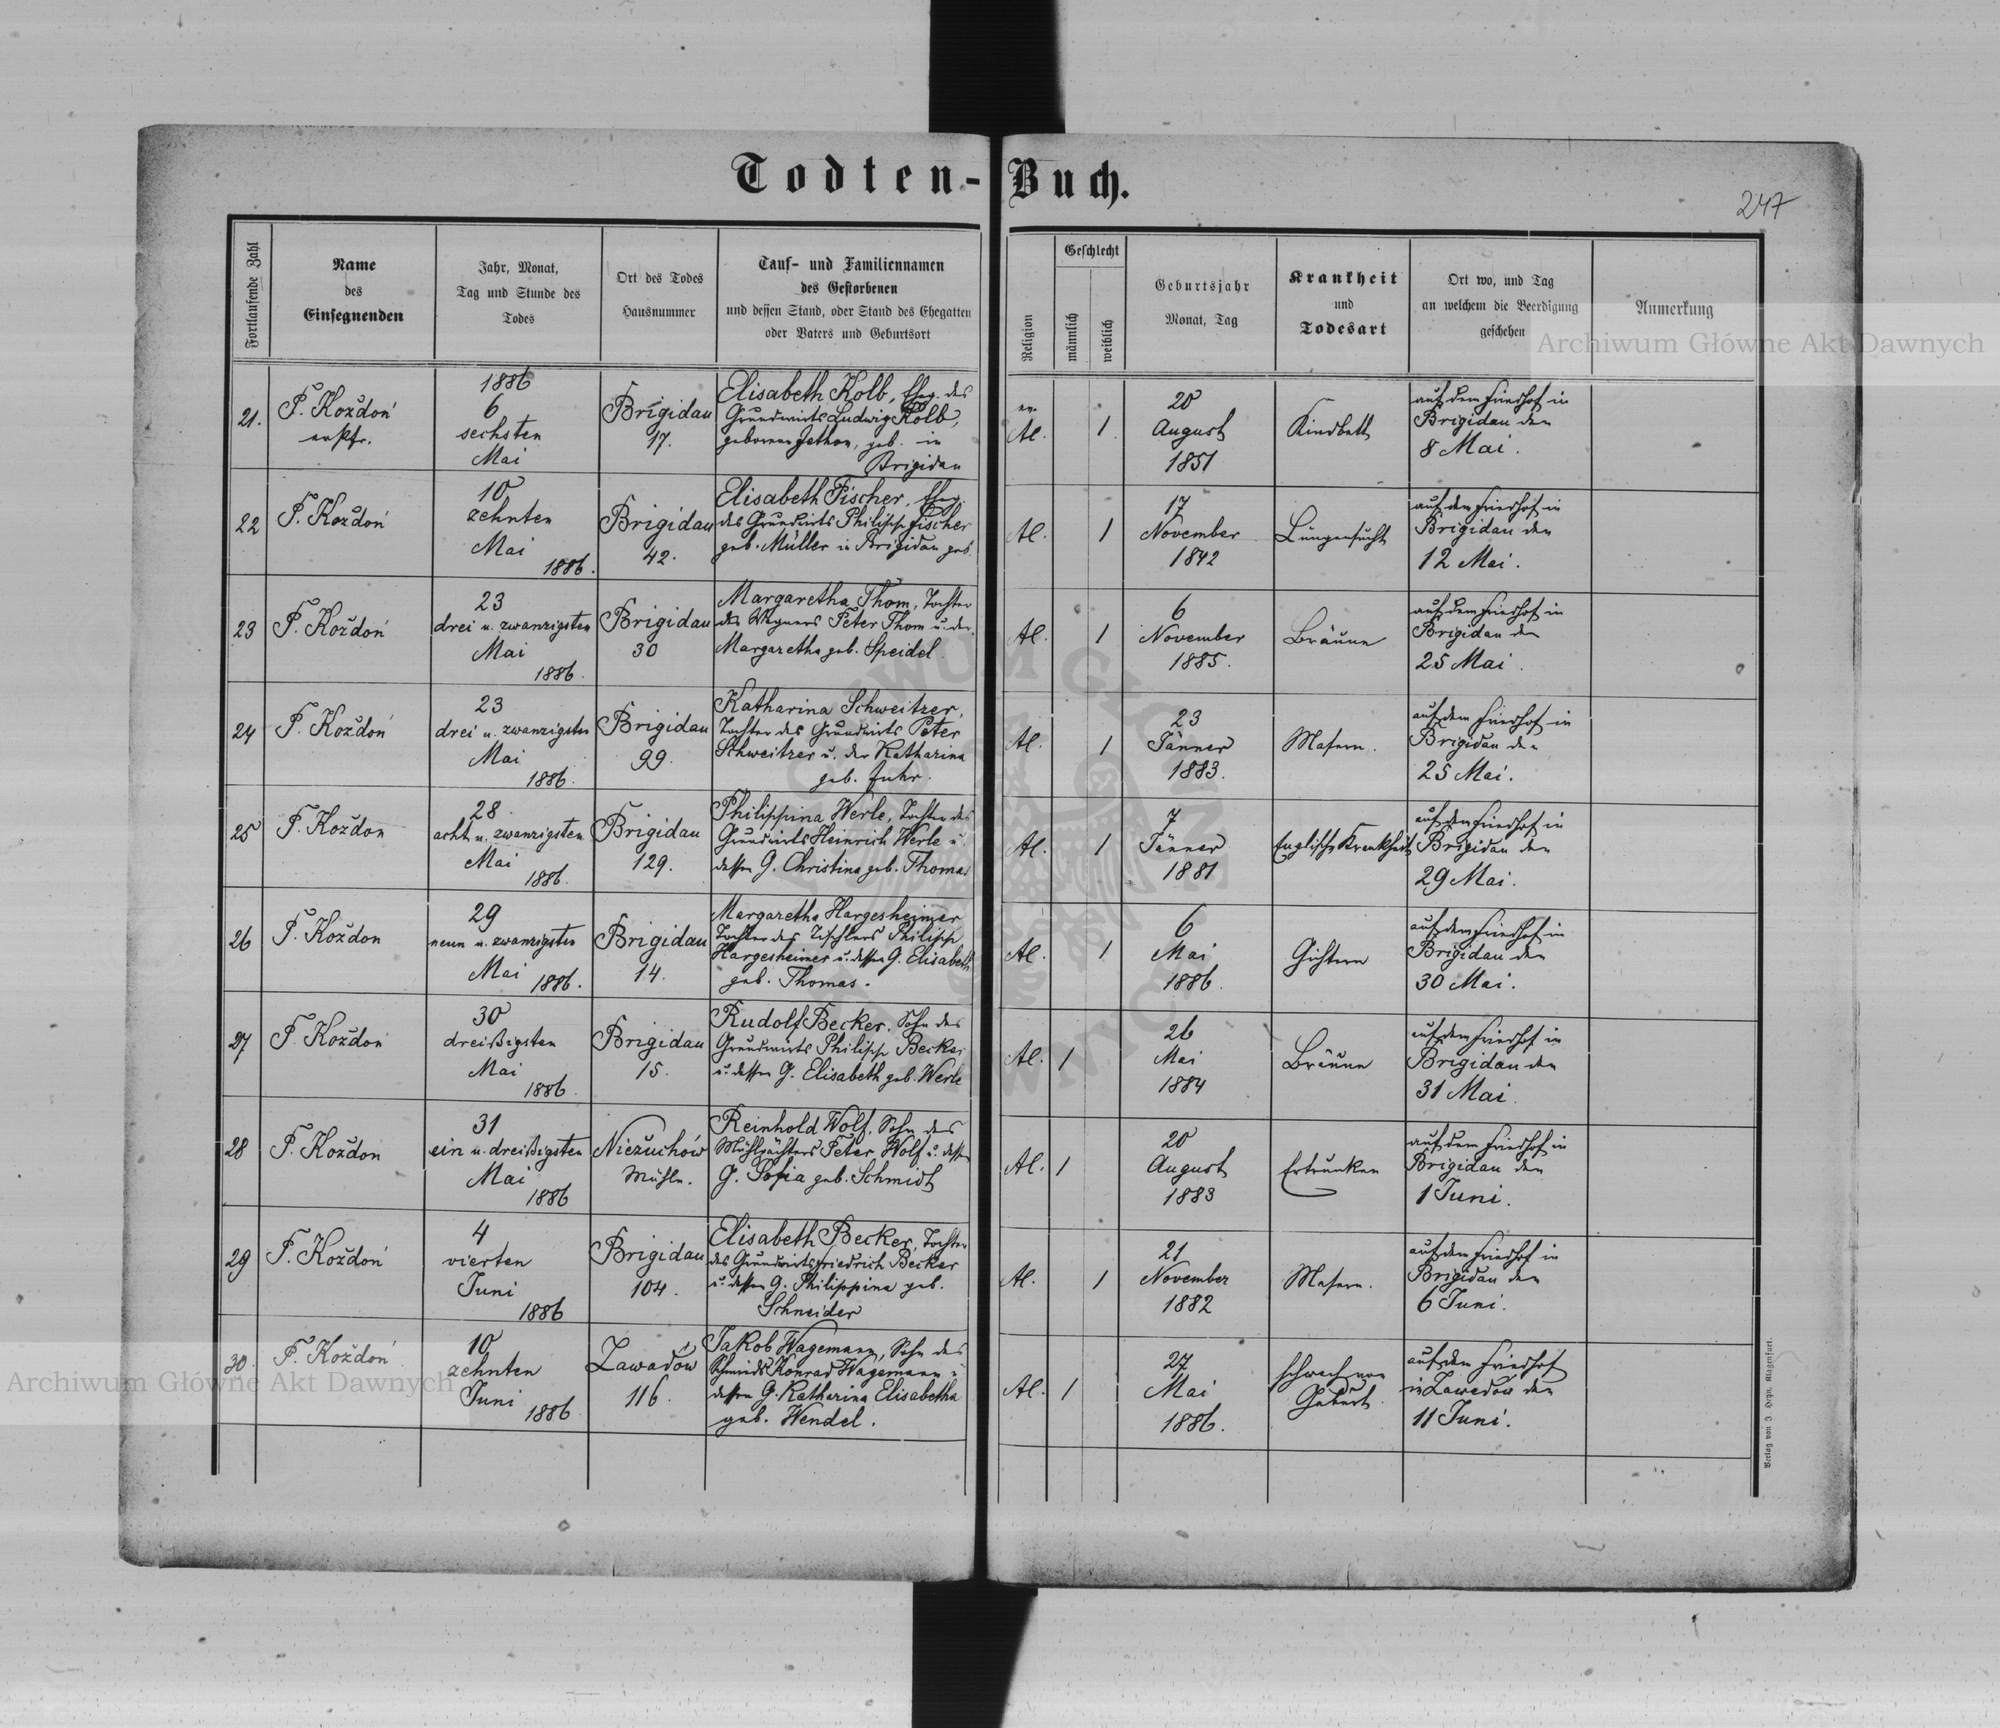 Todten-Buch.
247
Fortlaufende Zahl
Name
des
Einsegnenden
Jahr, Monat,
Tag und Stunde des
Todes
Ort des Todes
Hausnummer
Tauf- und Familiennamen
des Gestorbenen
und dessen Stand, oder Stand des Ehegatten
oder Vaters und Geburtsort
Religion
Geschlecht
männlich
weiblich
Geburtsjahr
Monat, Tag
Krankheit
und
Todesart
Ort wo, und Tag
an welchem die Beerdigung
geschehen
Anmerkung
Archiwum Główne Akt Dawnych
21.
F. Koždoń
ev. Pfr.
1886
6
sechsten
Mai
Brigidau
17.
Elisabeth Kolb, Eheg. des
Grundwirts Ludwig Kolb,
geborene Jethon, geb. in
Brigidau
ev.
Al.
1.
20
August
1851
Kindbett
auf dem Friedhof in
Brigidau den
8 Mai.
22
F. Koždoń
10
zehnten
Mai
1886.
Brigidau
42.
Elisabeth Fischer, Eheg.
des Grundwirts Philipp Fischer
geb. Müller in Brigidau geb.
Al.
1
17
November
1842
Lungensucht
auf dem Friedhof in
Brigidau den
12 Mai.
23
F. Koždoń
23
drei u. zwanzigsten
Mai
1886.
Brigidau
30
Margaretha Thom, Tochter
des Wagners Peter Thom u. der
Margaretha geb. Speidel
Al.
1
6
November
1885.
Bräune
auf dem Friedhof in
Brigidau den
25 Mai.
24
F. Koždoń
23
drei u. zwanzigsten
Mai
1886.
Brigidau
99.
Katharina Schweitzer,
Tochter des Grundwirts Peter
Schweitzer u. der Katharina
geb. Fuhr.
Al.
1
23
Jänner
1883.
Masern.
auf dem Friedhof in
Brigidau den
25 Mai.
25
F. Koždon
28
acht u. zwanzigsten
Mai
1886.
Brigidau
129.
Philippina Werle, Tochter des
Grundwirts Heinrich Werle u.
dessen G. Christina geb. Thomas
Al.
1
7
Jänner
1881
Englische Krankheit
auf dem Friedhof in
Brigidau den
29 Mai.
26
F. Koždon
29
neun u. zwanzigsten
Mai 1886.
Brigidau
14.
Margaretha Hargesheimer
Tochter des Tischlers Philipp
Hargesheimer u. dessen G. Elisabeth
geb. Thomas.
Al.
1
6
Mai
1886.
Gichtern
auf dem Friedhof in
Brigidau den
30 Mai.
27
F. Koždoń
30
dreißigsten
Mai
1886.
Brigidau
15.
Rudolf Becker, Sohn des
Grundwirts Philipp Becker
u. dessen G. Elisabeth geb. Werle
Al.
1
26
Mai
1884
Bräune
auf dem Friedhof in
Brigidau den
31 Mai.
28
F. Koždon
31
ein u. dreißigsten
Mai
1886
Niežuchów
Mühle.
Reinhold Wolf, Sohn des
Mühlpächters Peter Wolf u. dessen
G. Sofia geb. Schmidt
Al.
1
20
August
1883
Ertrunken
auf dem Friedhof in
Brigidau den
1 Juni.
29
F. Koždoń
4
vierten
Juni
1886
Brigidau
104.
Elisabeth Becker, Tochter
des Grundwirts Friedrich Becker
u. dessen G. Philippina geb.
Schneider
Al.
1
21
November
1882
Masern.
auf dem Friedhof in
Brigidau den
6 Juni.
30.
F. Koždoń
10
zehnten
Juni
1886
Zawadów
116.
Jakob Wagemann, Sohn des
Schmieds Konrad Wagemann u.
dessen G. Katharina Elisabetha
geb. Wendel.
Al.
1
27
Mai
1886.
schwach von
Geburt.
auf dem Friedhof
in Zawadów den
11 Juni.
Archiwum Główne Akt Dawnych
Verlag von J. Heyn, Klagenfurt.